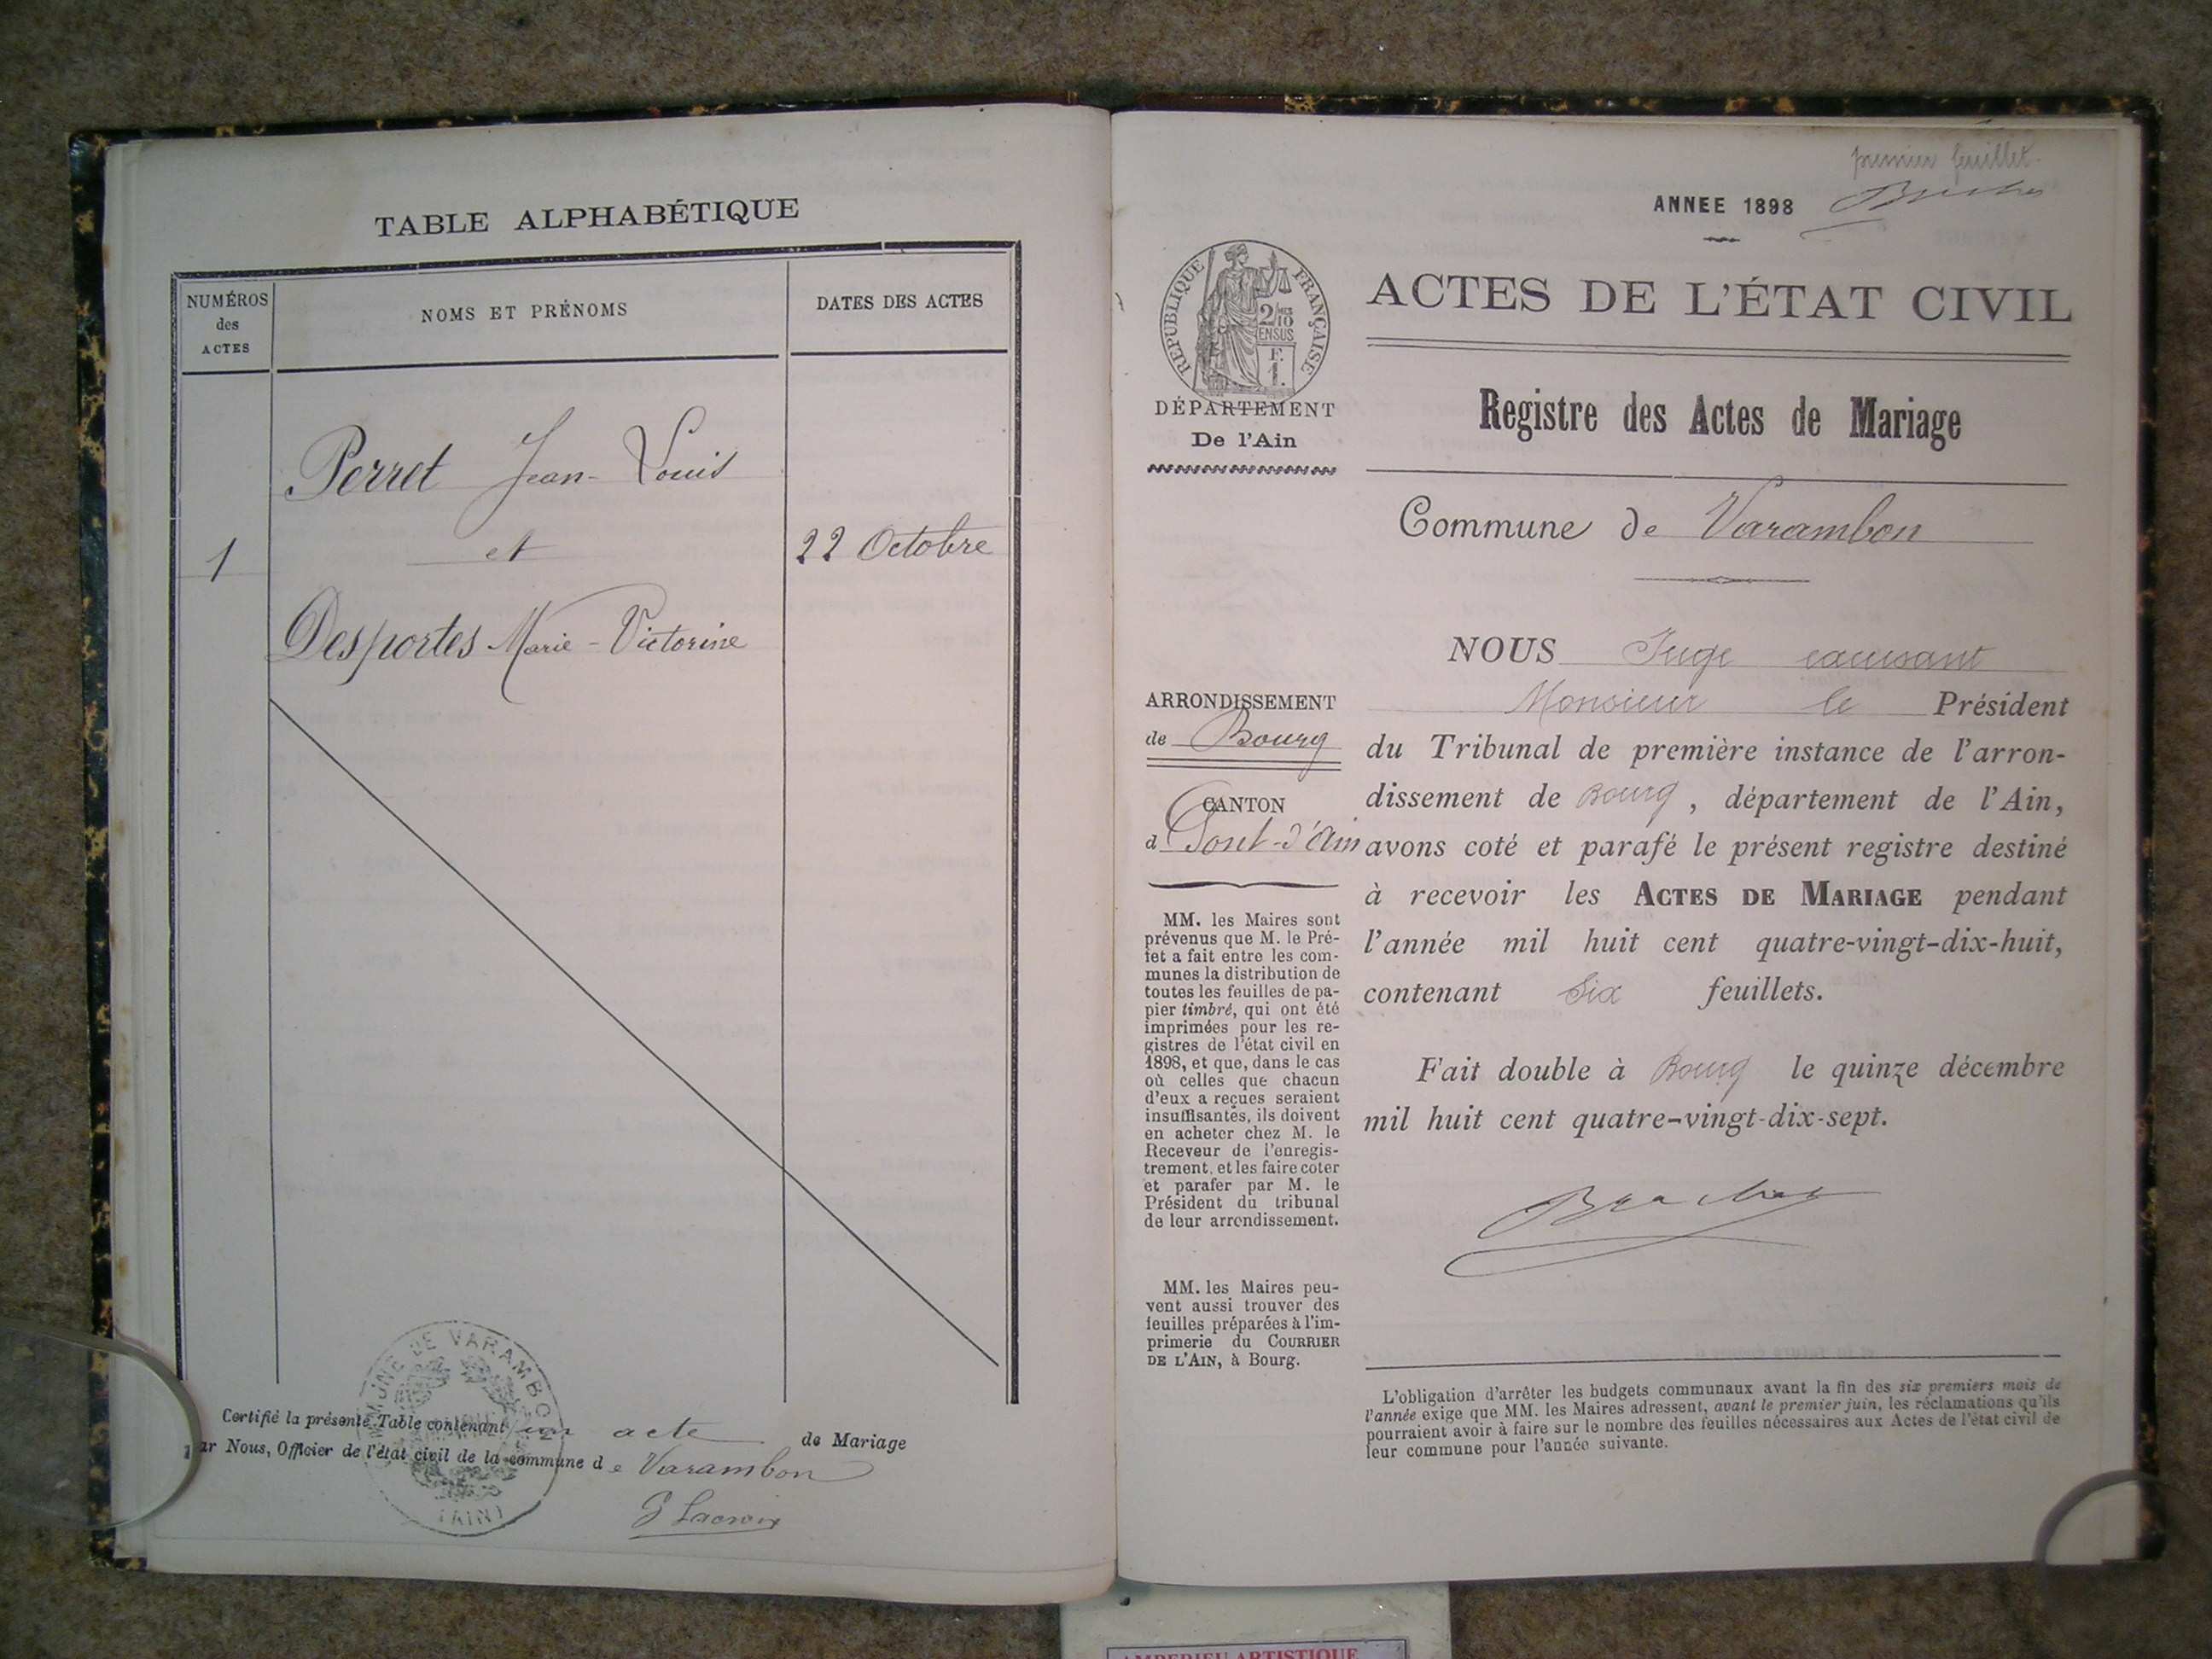 TABLE ALPHABÉTIQUE
NUMÉROS
des
ACTES
NOMS ET PRÉNOMS
DATES DES ACTES
Perret Jean-Louis
1
et
22 Octobre
Desportes Marie-Victorine
COMMUNE DE VARAMBON
(AIN)
Certifié la présente Table contenant un acte de Mariage
par Nous, Officier de l'état civil de la commune de Varambon
Lacroix
premier feuillet.
ANNEE 1898
RÉPUBLIQUE FRANÇAISE
2/10
EN SUS
F.
1.
DÉPARTEMENT
De l'Ain
ACTES DE L'ÉTAT CIVIL
Registre des Actes de Mariage
Commune de Varambon
ARRONDISSEMENT
de Bourg
CANTON
d Pont-d'Ain
MM. les Maires sont
prévenus que M. le Pré-
fet a fait entre les com-
munes la distribution de
toutes les feuilles de pa-
pier timbré, qui ont été
imprimées pour les re-
gistres de l'état civil en
1898, et que, dans le cas
où celles que chacun
d'eux a reçues seraient
insuffisantes, ils doivent
en acheter chez M. le
Receveur de l'enregis-
trement, et les faire coter
et parafer par M. le
Président du tribunal
de leur arrondissement.
MM. les Maires peu-
vent aussi trouver des
feuilles préparées à l'im-
primerie du COURRIER
DE L'AIN, à Bourg.
NOUS Juge
Monsieur le Président
du Tribunal de première instance de l'arron-
dissement de Bourg, département de l'Ain,
avons coté et parafé le présent registre destiné
à recevoir les ACTES DE MARIAGE pendant
l'année mil huit cent quatre-vingt-dix-huit,
contenant Six feuillets.
Fait double à Bourg le quinze décembre
mil huit cent quatre-vingt-dix-sept.
L'obligation d'arrêter les budgets communaux avant la fin des six premiers mois de
l'année exige que MM. les Maires adressent, avant le premier juin, les réclamations qu'ils
pourraient avoir à faire sur le nombre des feuilles nécessaires aux Actes de l'état civil de
leur commune pour l'année suivante.
ARTISTIQUE